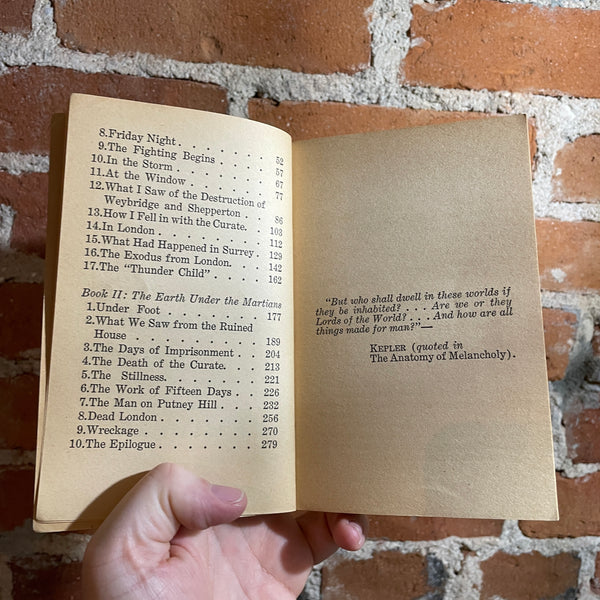 8.Friday Night . . . . . . . 52
9.The Fighting Begins . . . . . 57
10.In the Storm . . . . . . . 67
11.At the Window . . . . . . 77
12.What I Saw of the Destruction of
Weybridge and Shepperton . . . 86
13.How I Fell in with the Curate. . . 103
14.In London . . . . . . . . 112
15.What Had Happened in Surrey . 129
16.The Exodus from London. . . . 142
17.The "Thunder Child" . . . . . 162
Book II: The Earth Under the Martians
1.Under Foot . . . . . . . . 177
2.What We Saw from the Ruined
House . . . . . . . . . 189
3.The Days of Imprisonment . . . 204
4.The Death of the Curate. . . . 213
5.The Stillness. . . . . . . . 221
6.The Work of Fifteen Days . . . 226
7.The Man on Putney Hill . . . . 232
8.Dead London . . . . . . . 256
9.Wreckage . . . . . . . . 270
10.The Epilogue . . . . . . . 279
"But who shall dwell in these worlds if
they be inhabited? . . . Are we or they
Lords of the World? . . . And how are all
things made for man?"—
KEPLER (quoted in
The Anatomy of Melancholy).